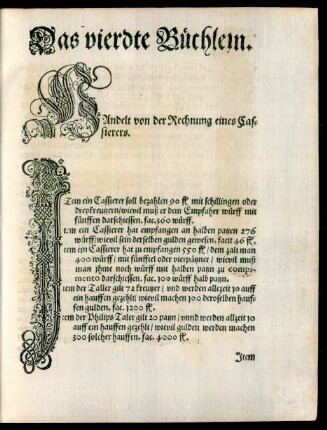 Das vierdte Büchlein.
HAndelt von der Rechnung eines Cas-
sierers.
ITem ein Cassierer soll bezahlen 90 fl. mit schillingen oder
dreykreutzern/wievil muß er dem Empfaher würff mit
fünffen darschiessen. fac. 360 würff.
tem ein Cassierer hat empfangen an halben patzen 276
würff/wievil sein derselben gulden gewesen. facit 46 fl.
tem ein Cassierer hat zu empfangen 550 fl/ dem zalt man
400 würff/ mit fünfftel oder vierpätzner/ wievil muß
man jhme noch würff mit halben patzn zu compi-
mento darschiessen. fac. 300 würff halb patzn.
tem der Taller gilt 72 kreutzer/ vnd werden allzeit 30 auff
ein hauffen gezehlt/ wievil machen 100 deroselben hauf-
fen gulden. fac. 3200 fl.
tem der Philips Taler gilt 20 patzn/ vnnd werden allzeit 10
auff ein hauffen gezehlt/ wievil gulden werden machen
300 solcher hauffen. fac. 4000 fl.
Item